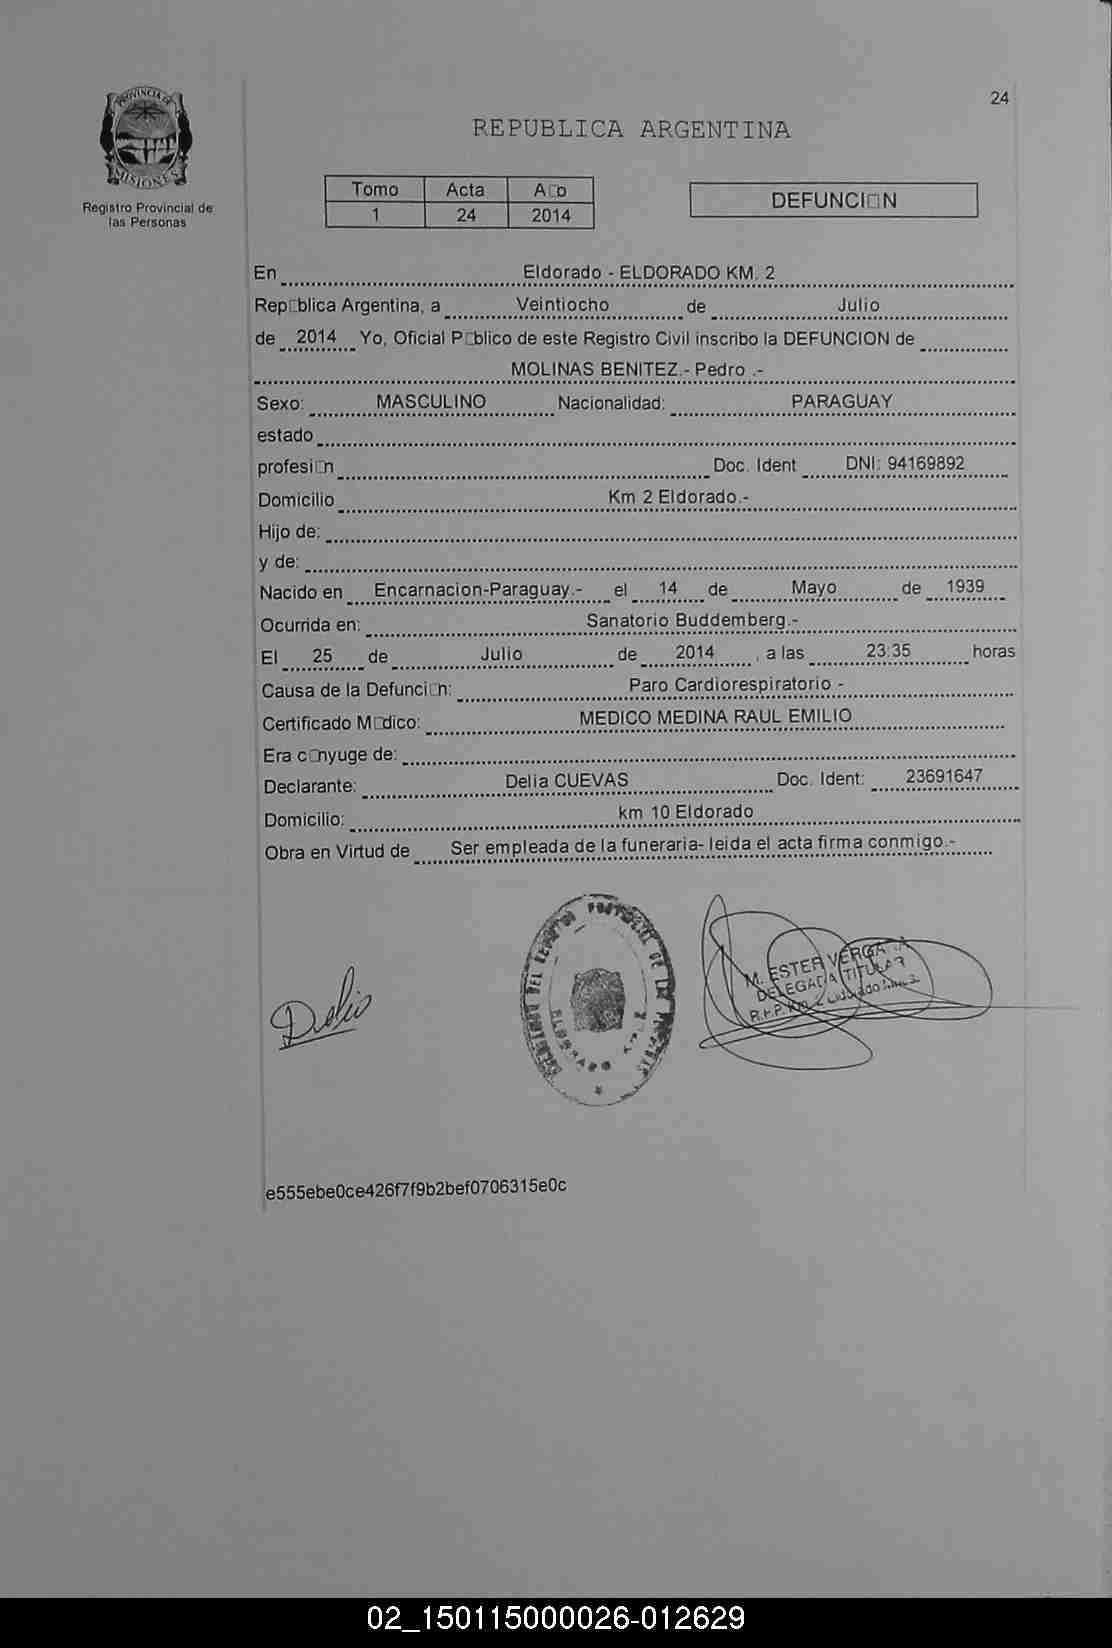 24
PROVINCIA DE
MISIONES
Registro Provincial de
las Personas
REPUBLICA ARGENTINA
Tomo Acta A□o
1 24 2014
DEFUNCI□N
En Eldorado - ELDORADO KM. 2
Rep□blica Argentina, a Veintiocho de Julio
de 2014 Yo, Oficial P□blico de este Registro Civil inscribo la DEFUNCION de
MOLINAS BENITEZ.- Pedro .-
Sexo: MASCULINO Nacionalidad: PARAGUAY
estado
profesi□n Doc. Ident DNI: 94169892
Domicilio Km 2 Eldorado.-
Hijo de:
y de:
Nacido en Encarnacion-Paraguay.- el 14 de Mayo de 1939
Ocurrida en: Sanatorio Buddemberg.-
El 25 de Julio de 2014 , a las 23:35 horas
Causa de la Defunci□n: Paro Cardiorespiratorio -
Certificado M□dico: MEDICO MEDINA RAUL EMILIO
Era c□nyuge de:
Declarante: Delia CUEVAS Doc. Ident: 23691647
Domicilio: km 10 Eldorado
Obra en Virtud de Ser empleada de la funeraria- leida el acta firma conmigo.-
M. ESTER VERGARA
DELEGADA TITULAR
R.P.P. Km. 2 Eldorado
ELDORADO
e555ebe0ce426f7f9b2bef0706315e0c
02_150115000026-012629